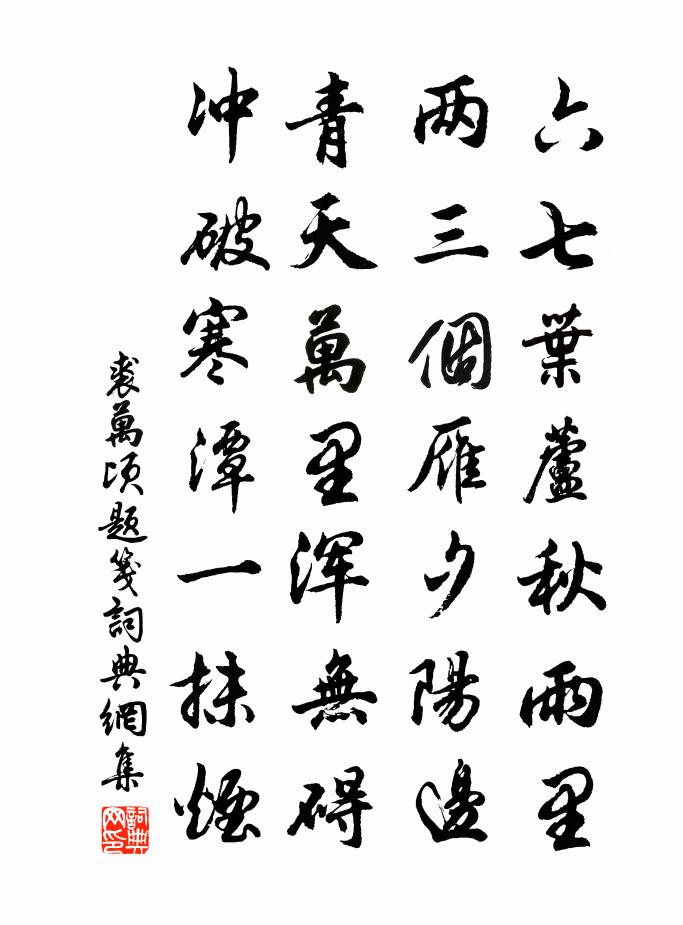 六七葉蘆秋雨里
两三個雁夕陽邊
青天萬里浑無碍
冲破寒潭一抹煙
裘萬顷题箋詞典網集
詞典网印